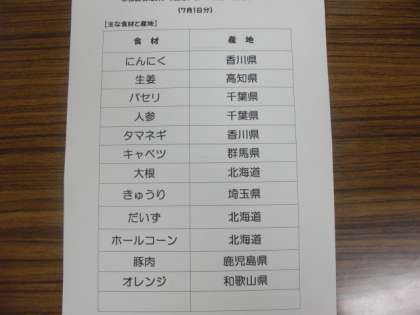 (7月1日分)
[主な食材と産地]
食 材 産 地
にんにく 香川県
生姜 高知県
パセリ 千葉県
人参 千葉県
タマネギ 香川県
キャベツ 群馬県
大根 北海道
きゅうり 埼玉県
だいず 北海道
ホールコーン 北海道
豚肉 鹿児島県
オレンジ 和歌山県